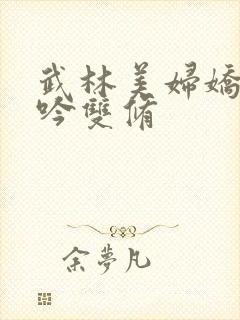 武林美婦嬌
吟雙脩
余夢凡